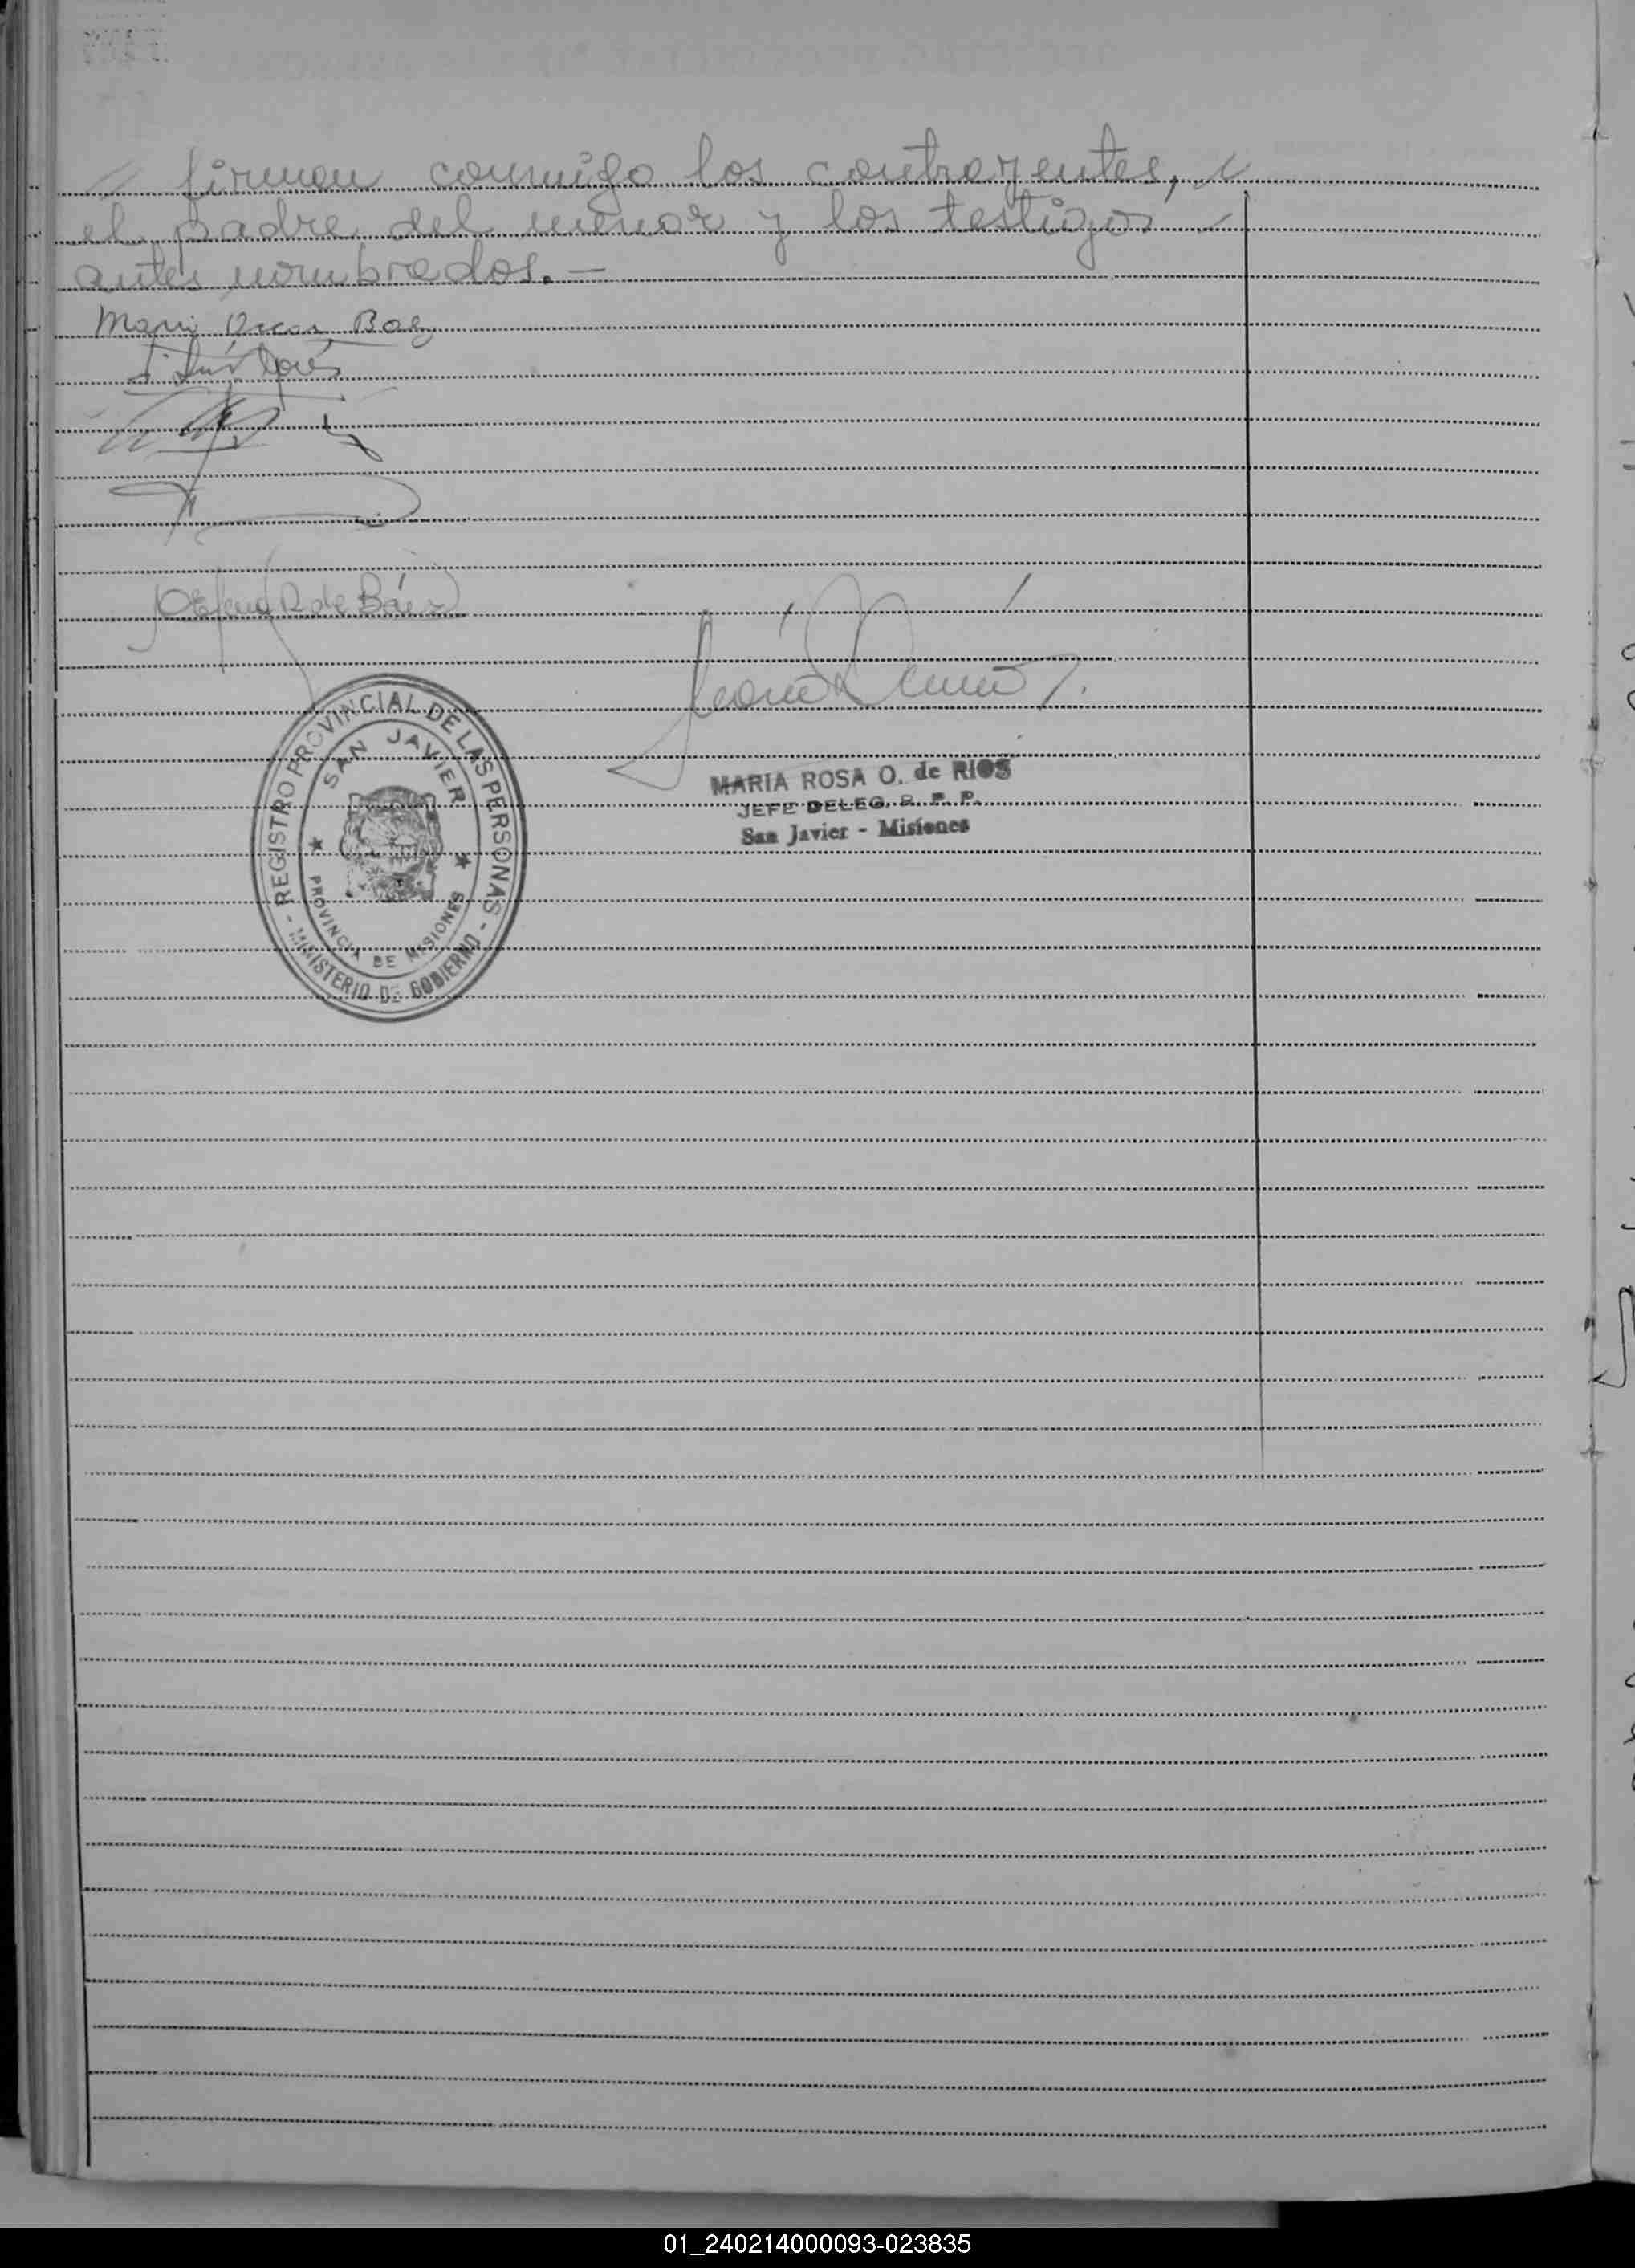 firman conmigo los contrayentes,
el padre del menor y los testigos
antes nombrados. —
Mario Oscar Baez
de Báez
REGISTRO PROVINCIAL DE LAS PERSONAS
- MINISTERIO DE GOBIERNO -
SAN JAVIER
PROVINCIA DE MISIONES
MARIA ROSA O. de RIOS
JEFE DELEG. R. P. P.
San Javier - Misiones
01_240214000093-023835